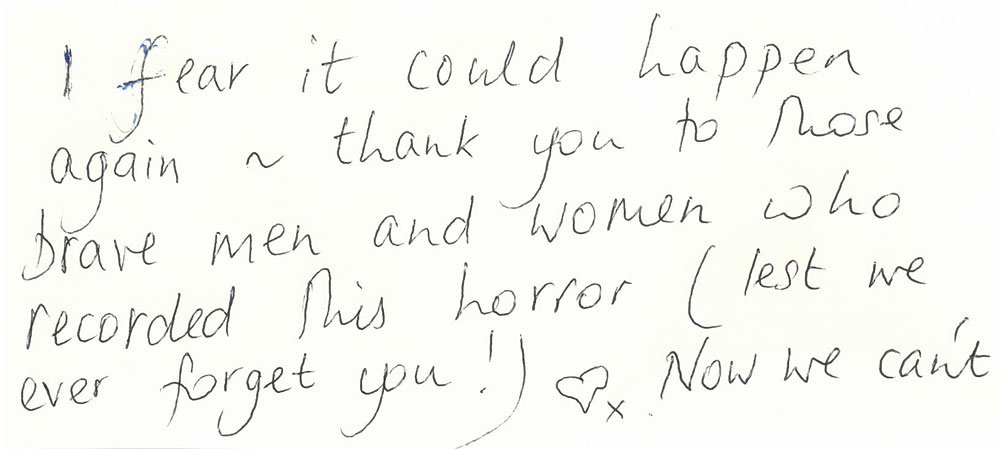 I fear it could happen
again ~ thank you to those
brave men and women who
recorded this horror (lest we
ever forget you!) ♡x. Now we can't